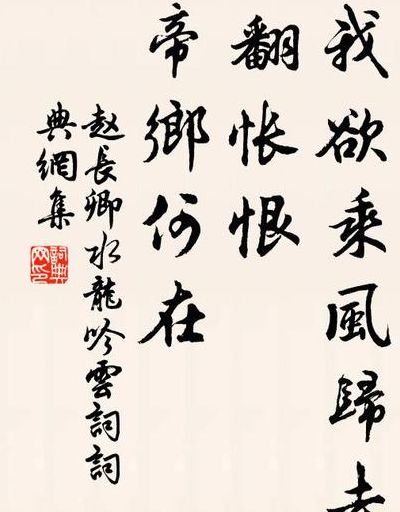 我欲乘風歸去
翻怅恨
帝鄉何在
赵長卿水龍吟雲詞詞
典網集
詞典
网印